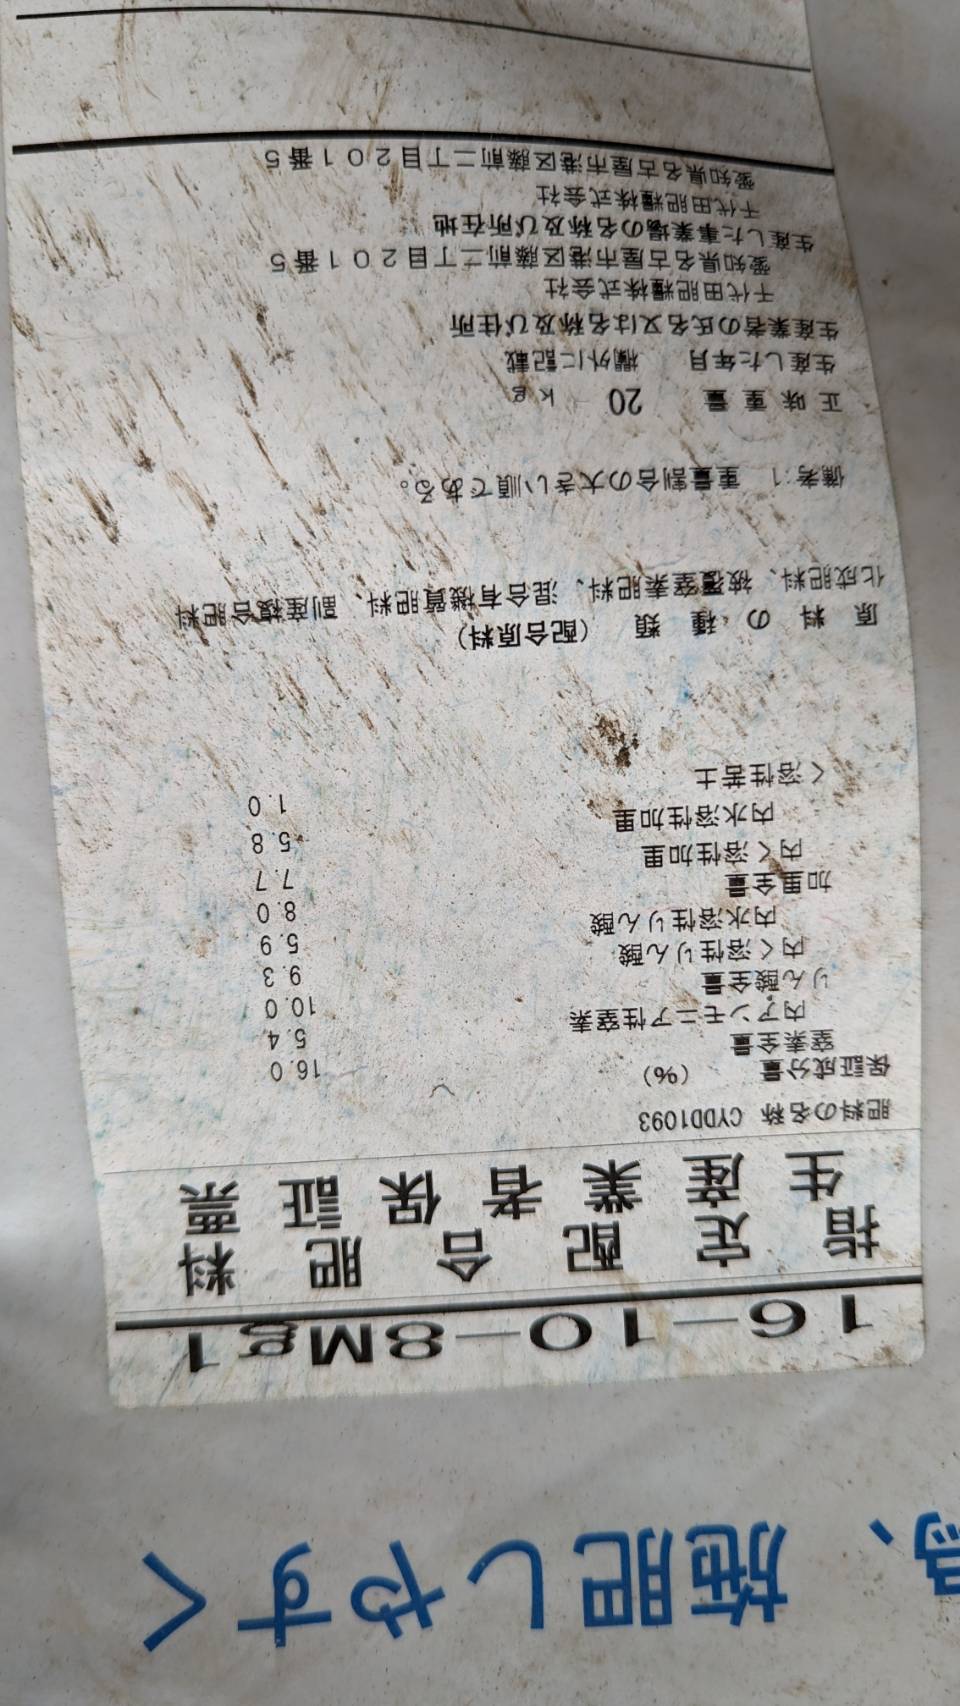 、施肥しやすく
16-10-8Mg1
指定配合肥料
生産業者保証票
肥料の名称 CYDD1093
保証成分量 (%)
窒素全量 16.0
内アンモニア性窒素 5.4
りん酸全量 10.0
内く溶性りん酸 9.3
内水溶性りん酸 5.9
加里全量 8.0
内く溶性加里 7.7
内水溶性加里 5.8
く溶性苦土 1.0
原料の種類 (配合原料)
化成肥料、被覆窒素肥料、混合有機質肥料、副産複合肥料
備考:1 重量割合の大きい順である。
正味重量 20 kg
生産した年月 欄外に記載
生産業者の氏名又は名称及び住所
千代田肥糧株式会社
愛知県名古屋市港区藤前二丁目201番5
生産した事業場の名称及び所在地
千代田肥糧株式会社
愛知県名古屋市港区藤前二丁目201番5